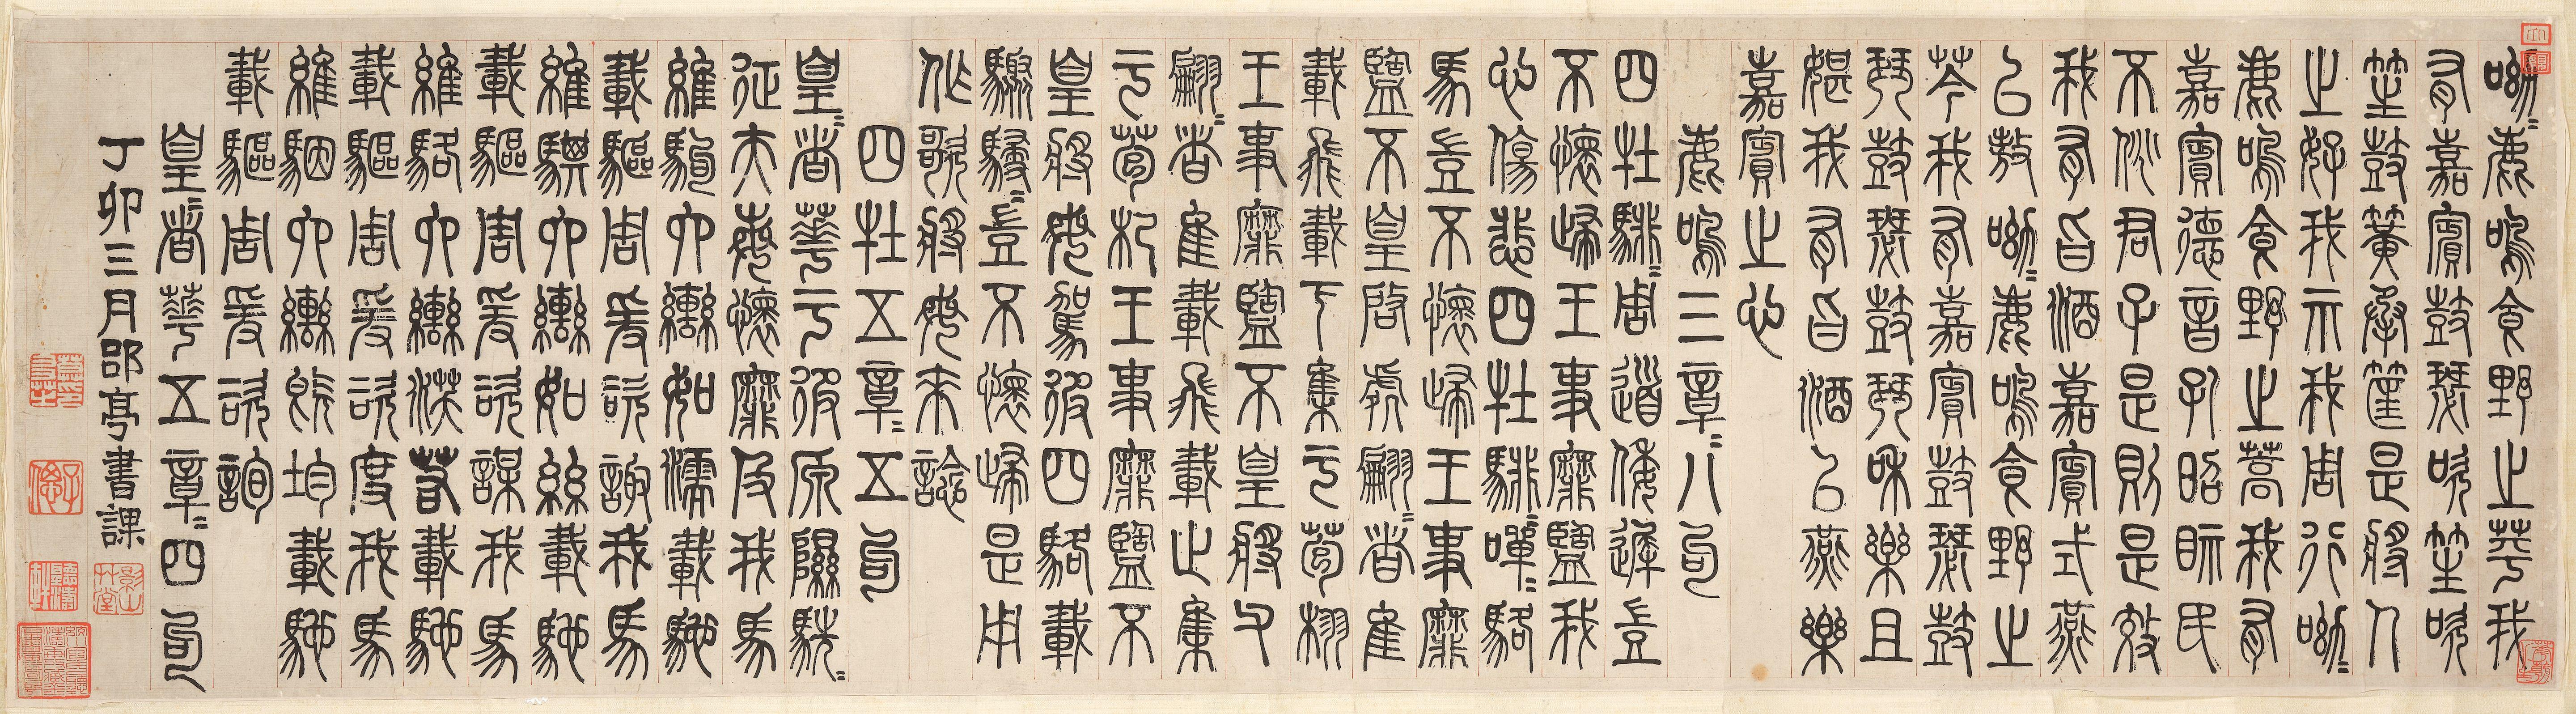 呦〻鹿鳴食野止苹我
有嘉賓鼓瑟吹笙吹
笙鼓簧承筐是將人
止好我示我周行呦〻
鹿鳴食野止蒿我有
嘉賓德音孔昭眎民
不佻君子是則是效
我有旨酒嘉賓式燕
以敖呦〻鹿鳴食野止
芩我有嘉賓鼓瑟鼓
琴鼓瑟鼓琴和樂且
媅我有旨酒以燕樂
嘉賓止心
鹿鳴三章〻八句
四牡騑〻周道倭遲豈
不懷歸王事靡盬我
心傷悲四牡騑〻嘽〻駱
馬豈不懷歸王事靡
盬不皇啟處翩〻者隹
載飛載下集于苞栩
王事靡盬不皇將父
翩〻者隹載飛載止集
于苞杞王事靡盬不
皇將母駕彼四駱載
驟駸〻豈不懷歸是用
作歌將母來諗
四牡五章〻五句
皇〻者華于彼原隰駪〻
征夫每懷靡及我馬
維駒六轡如濡載馳
載驅周爰諮諏我馬
維騏六轡如絲載馳
載驅周爰諮謀我馬
維駱六轡沃若載馳
載驅周爰諮度我馬
維駰六轡既均載馳
載驅周爰諮詢
皇〻者華五章〻四句
丁卯三月郘亭書課
影山草堂
莫友芝印
子偲